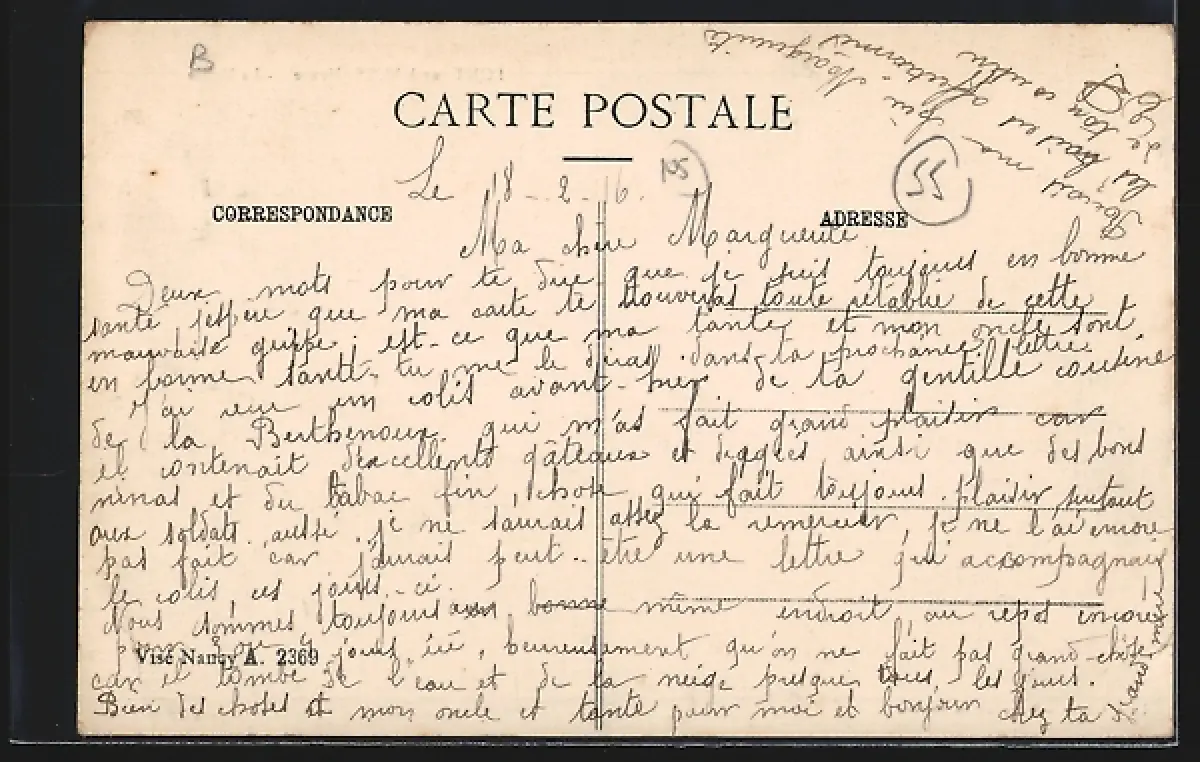 B
CARTE POSTALE
Le 18-2-16.
105
55
CORRESPONDANCE
ADRESSE
Ma chère Marguerite
Deux mots pour te dire que je suis toujours en bonne
santé j'espère que ma carte te trouveras toute rétablie de cette
mauvaise grippe, est-ce que ma tante et mon oncle sont
en bonne santé tu me le diras dans ta prochaine lettre.
J'ai reçu un colis avant-hier de la gentille cousine
de la Berthenoux qui m'as fait grand plaisir car
il contenait d'excellents gâteaux et dragées ainsi que des bons
ninas et du tabac fin, chose qui fait toujours plaisir surtout
aux soldats, aussi je ne saurais assez la remercier, je ne l'ai encore
pas fait car j'aurais peut-être une lettre qui accompagnait
le colis, ces jours-ci.
Nous sommes toujours au même endroit, au repos encore
pour jours ici, heureusement qu'on ne fait pas grand-chose
Visé Nancy A. 2369
car il tombe de l'eau et de la neige presque tous les jours.
Bien des choses et mon oncle et tante pour moi et bonjour chez ta
Reçois ma
les
de ton cousin